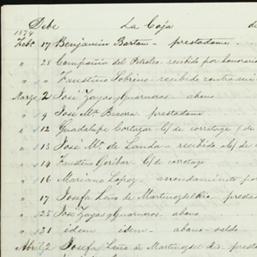 Debe La Caja de
1874
Feb. 17 Benjamin Barton - prestadome
" 28 Compañia del Petroleo recibido por honorarios
" " Faustino Sobrino recibido
Marzo 2 José Zayas Guarneros abono
" 9 José Ma. Bueno prestadome
" 12 Guadalupe Cortazar c/ de corretage
" 13 José Ma. de Landa - recibido c/ de
" 14 Faustino Goribar c/ de corretage
" 16 Mariano Lopez - arrendamiento
" 17 Josefa Leño de Martinez del Rio, prestadome
" 25 José Zayas y Guarneros abono
" 31 idem idem - abono - saldo
Abril 2 Josefa Leño de Martinez del Rio